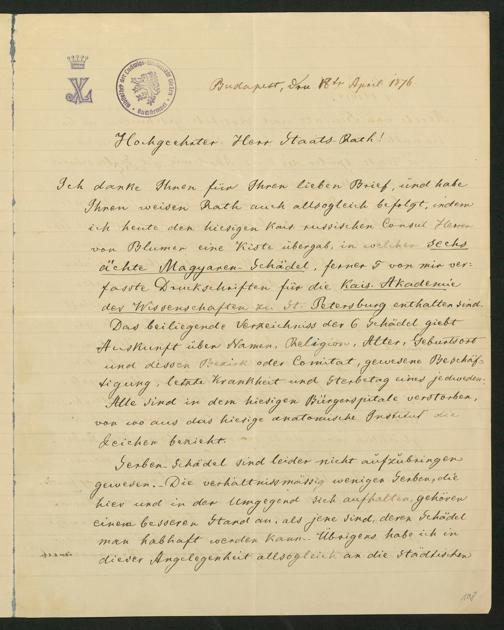 Budapest, den 18ten April 1876
Hochgeehrter Herr Staats-Rath!
Ich danke Ihnen für Ihren lieben Brief, und habe
Ihren weisen Rath auch allsogleich befolgt, indem
ich heute dem hiesigen Kais. russischen Consul Herrn
von Blumer eine Kiste übergab, in welcher sechs
ächte Magyaren-Schädel, ferner 5 von mir ver-
fasste Druckschriften für die Kais. Akademie
der Wissenschaften zu St. Petersburg enthalten sind.
Das beiliegende Verzeichniss der 6 Schädel giebt
Auskunft über Namen, Religion, Alter, Geburtsort
und dissen Bezirk oder Comitat, gewesene Beschäf-
tigung, letzte Krankheit und Sterbetag eines jedweden.
Alle sind in dem hiesigen Bürgerspitale verstorben,
von wo aus das hiesige anatomische Institut die
Leichen bezieht.
Serben-Schädel sind leider nicht aufzubringen
gewesen. Die verhältnissmässig wenigen Serben, die
hier und in der Umgegend sich aufhalten, gehören
einem besseren Stand an, als jene sind, deren Schädel
man habhaft werden kann. Übrigens habe ich in
dieser Angelegenheit allsogleich an die städtischen
108